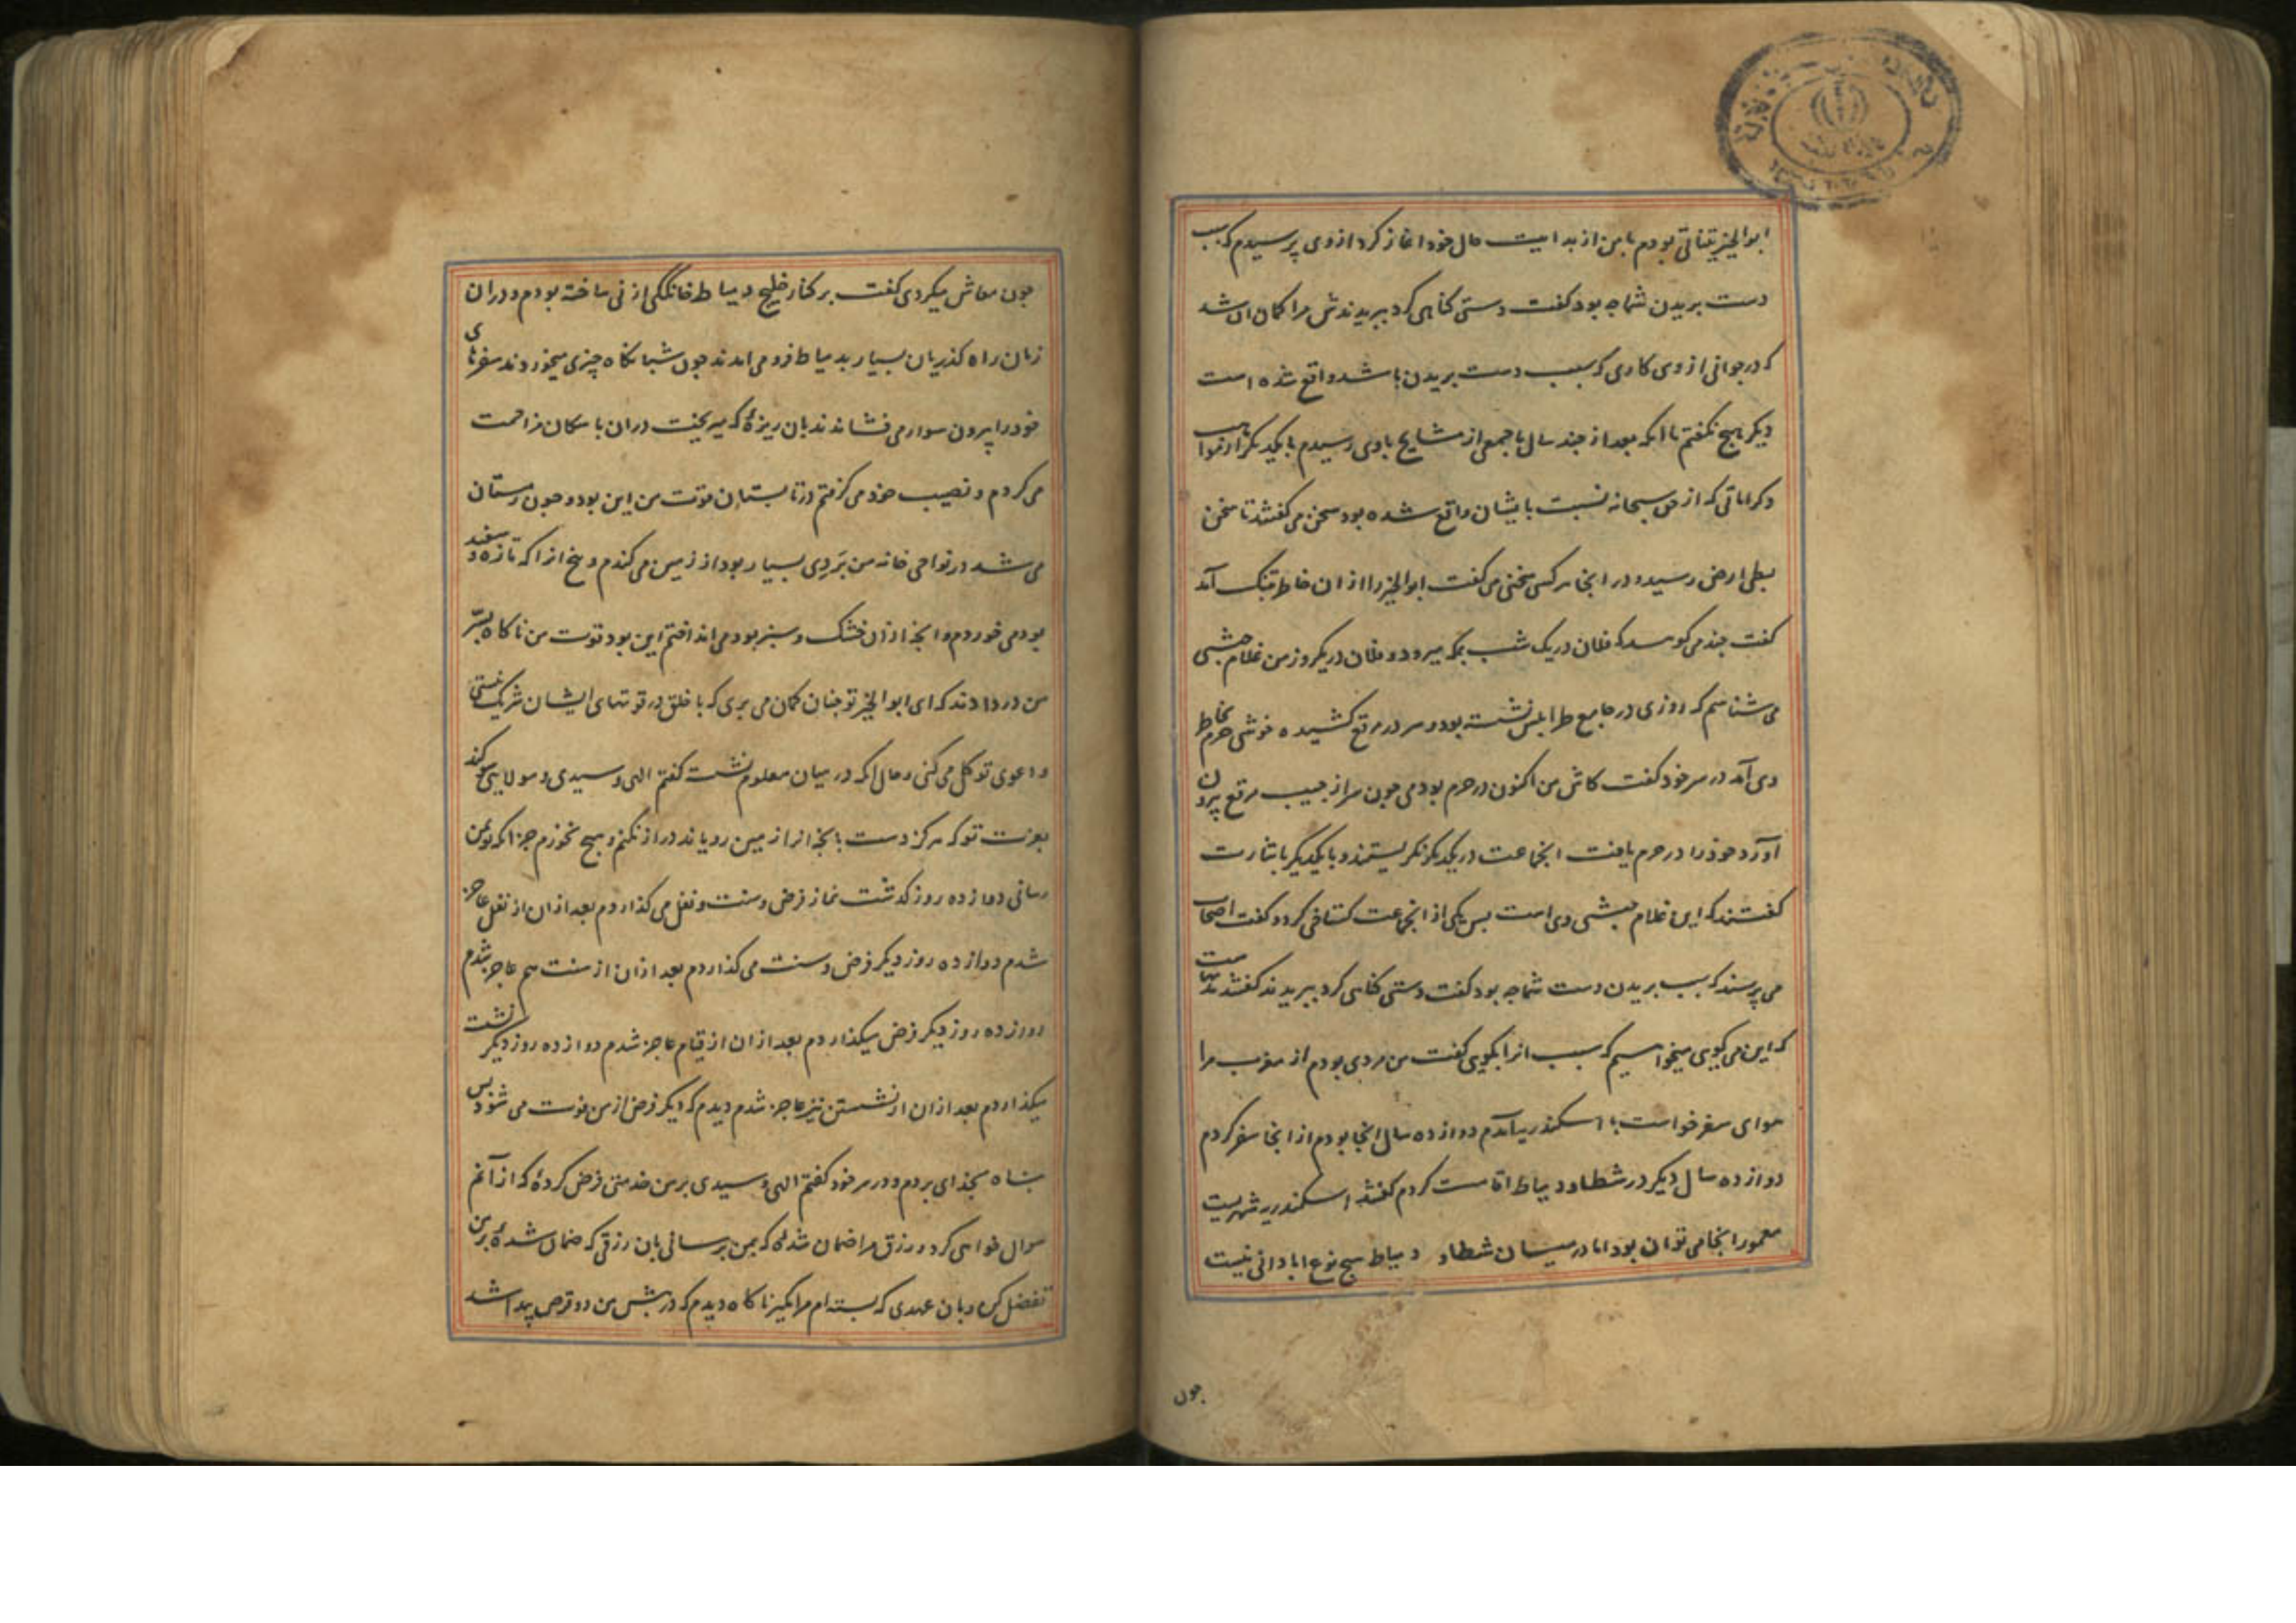 ابوالخیر تیناتی بودم با من از بدایت حال خود اغاز کرد از وی پرسیدم که سبب
دست بریدن شما چه بود کفت دستی کناهی کرد ببریدندش مرا کمان ان شد
که در جوانی از وی کاری که سبب دست بریدن باشد واقع شده است
دیکر هیچ نکفتم تا انکه بعد از چند سال با جمعی از مشایخ باوی رسیدم با یکدیکر از مواهب
و کراماتی که از حق سبحانه نسبت بایشان واقع شده بود سخن می کفتند تا سخن
بطی ارض رسید و در انجا هر کسی سخنی می کفت ابوالخیر را از ان خاطر تنک آمد
کفت چند می کویید که فلان در یک شب بمکه میرود و فلان در یکروز من غلام حبشی
می شناسم که روزی در جامع طرابلس نشسته بود و سر در مرقع کشیده خوشی حرم بخاطر
وی آمد در سر خود کفت کاش من اکنون در حرم بودمی چون سر از جیب مرقع بیرون
آورد خود را در حرم یافت انجماعت در یکدیکر نکریستند و با یکدیکر باشارت
کفتند که این غلام حبشی وی است پس یکی از انجماعت کستاخی کرد و کفت اصحاب
می پرسند که سبب بریدن دست شما چه بود کفت دستی کناهی کرد ببریدند کفتند مدتهاست
که این می کویی میخواهیم که سبب انرا بکویی کفت من مردی بودم از مغرب مرا
هوای سفر خواست باسکندریه آمدم دوازده سال انجا بودم از انجا سفر کردم
دوازده سال دیکر در شطا و دمیاط اقامت کردم کفتند اسکندریه شهریست
معمور انجا می توان بود اما در میان شطا و دمیاط هیچ نوع ابادانی نیست
چون
چون معاش میکردی کفت بر کنار خلیج دمیاط خانککی از نی ساخته بودم و دران
زمان راه کذریان بسیار بدمیاط فرو می امدند چون شبانکاه چیزی میخوردند سفرهای
خود را بیرون سوار می فشاندند بان ریزهٔ که میریخت دران با سکان مزاحمت
می کردم و نصیب خود می کرفتم در تابستان قوت من این بود و چون زمستان
می شد در نواحی خانه من بَردی بسیار بود از زمین می کندم و بیخ انرا که تازه و سفید
بود می خوردم و انچه از ان خشک و سبز بود می انداختم این بود قوت من ناکاه بسرّ
من در دادند که ای ابوالخیر تو چنان کمان می بری که با خلق در قوتهای ایشان شریک نیستی
و دعوی توکل می کنی و حال انکه در میان معلوم نشسته کفتم الهی و سیدی و مولایی سوکند
بعزت تو که هرکز دست بانچه انرا زمین رویاند دراز نکنم و هیچ نخورم جز انکه تو بمن
رسانی دوازده روز کذشت نماز فرض و سنت و نفل می کذاردم بعد از ان از نفل عاجز
شدم دوازده روز دیکر فرض و سنت می کذاردم بعد از ان از سنت هم عاجز شدم
دوازده روز دیکر فرض میکذاردم بعد از ان از قیام عاجز شدم دوازده روز دیکر نشسته
میکذاردم بعد از ان از نشستن نیز عاجز شدم دیدم که دیکر فرض از من فوت می شود پس
پناه بخدای بردم و در سر خود کفتم الهی و سیدی بر من خدمتی فرض کردهٔ که از آنم
سوال خواهی کرد و رزق مرا ضمان شدهٔ که بمن برسانی بان رزقی که ضمان شدهٔ بر من
تفضل کن و بان عهدی که بسته ام مرا مکیر ناکاه دیدم که در پیش من دو قرص پیدا شد